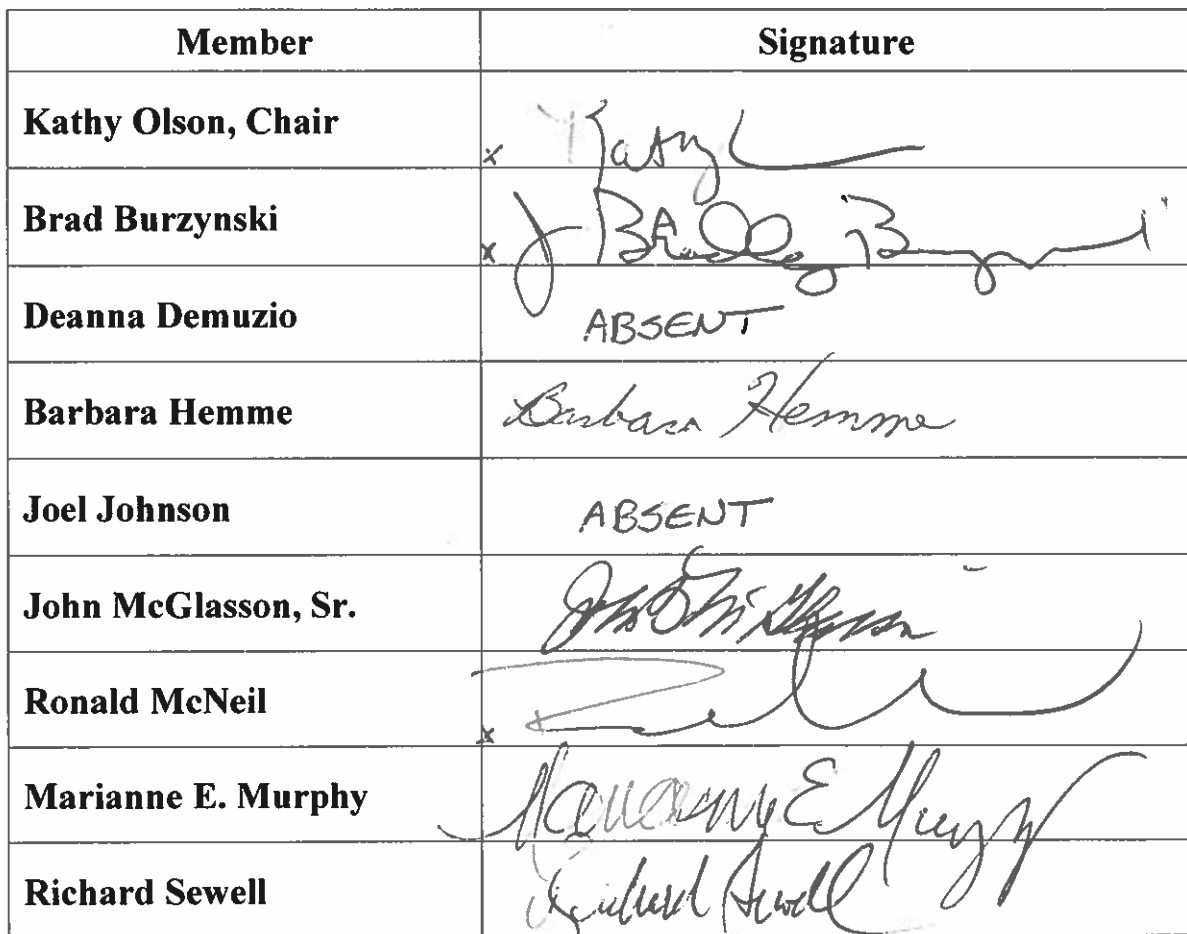 Member Signature
Kathy Olson, Chair x Kathy
Brad Burzynski x J Bradley Burzynski
Deanna Demuzio ABSENT
Barbara Hemme Barbara Hemme
Joel Johnson ABSENT
John McGlasson, Sr. John
Ronald McNeil x
Marianne E. Murphy E. Murphy
Richard Sewell Richard Sewell